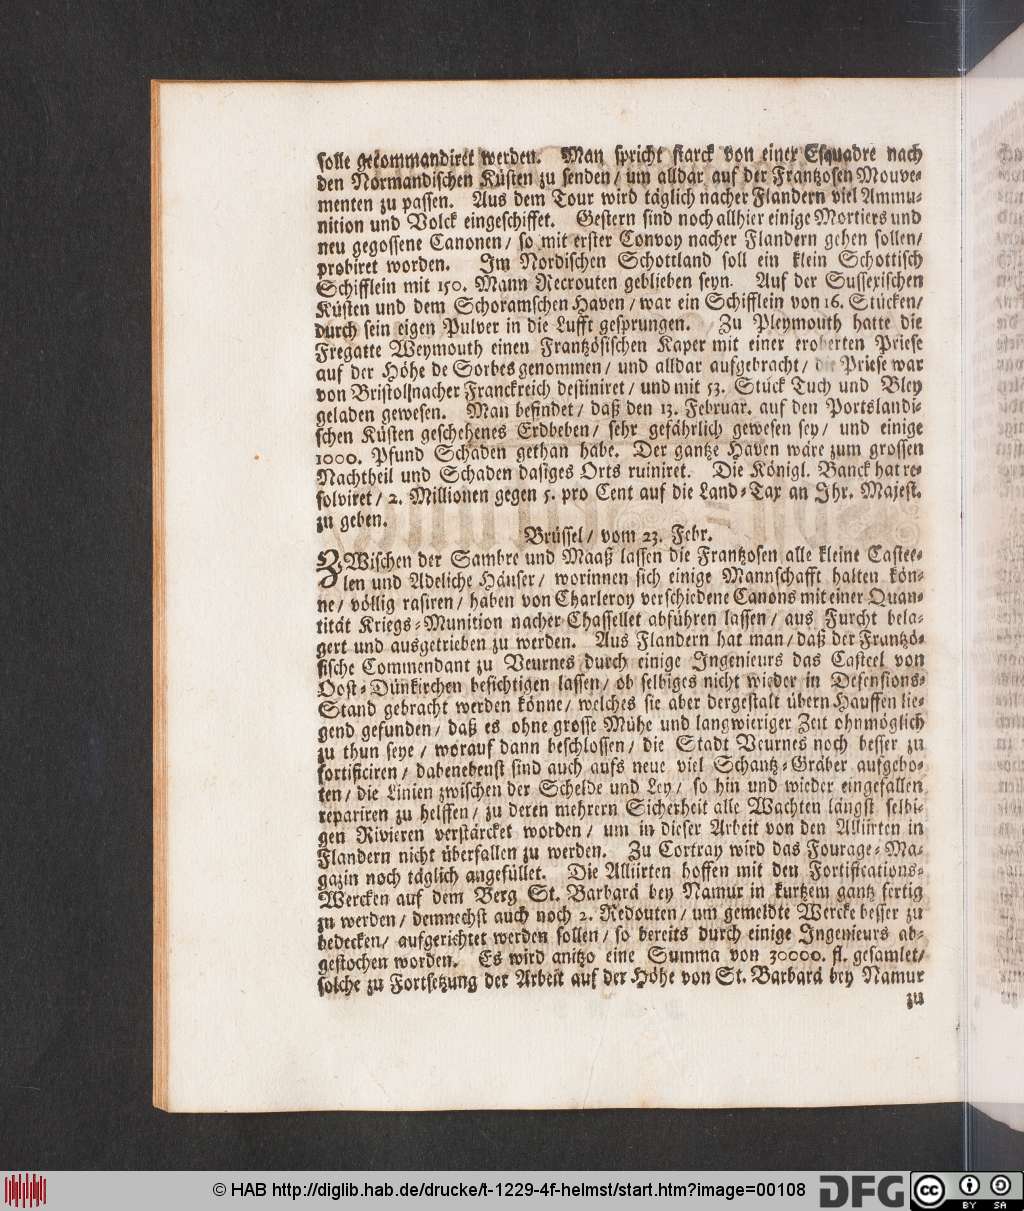 solle gecommandiret werden. Man spricht starck von einer Esquadre nach
den Normandischen Küsten zu senden / um alldar auf der Frantzosen Mouve-
menten zu passen. Aus dem Tour wird täglich nacher Flandern viel Ammu-
nition und Volck eingeschiffet. Gestern sind noch allhier einige Mortiers und
neu gegossene Canonen / so mit erster Convoy nacher Flandern gehen sollen /
probiret worden. Im Nordischen Schottland soll ein klein Schottisch
Schifflein mit 150. Mann Recrouten geblieben seyn. Auf der Sussexischen
Küsten und dem Schoramschen Haven / war ein Schifflein von 16. Stücken /
durch sein eigen Pulver in die Lufft gesprungen. Zu Pleymouth hatte die
Fregatte Weymouth einen Frantzösischen Kaper mit einer eroberten Priese
auf der Höhe de Sorbes genommen / und alldar aufgebracht / die Priese war
von Bristoll nacher Franckreich destiniret / und mit 53. Stück Tuch und Bley
geladen gewesen. Man befindet / daß den 13. Februar. auf den Portslandi-
schen Küsten geschehenes Erdbeben / sehr gefährlich gewesen sey / und einige
1000. Pfund Schaden gethan habe. Der gantze Haven wäre zum grossen
Nachtheil und Schaden dasiges Orts ruiniret. Die Königl. Banck hat re-
solviret / 2. Millionen gegen 5. pro Cent auf die Land-Tax an Ihr. Majest.
zu geben.
Brüssel / vom 23. Febr.
ZWischen der Sambre und Maaß lassen die Frantzosen alle kleine Castee-
len und Adeliche Häuser / worinnen sich einige Mannschafft halten kön-
ne / völlig rasiren / haben von Charleroy verschiedene Canons mit einer Quan-
tität Kriegs-Munition nacher Chassellet abführen lassen / aus Furcht bela-
gert und ausgetrieben zu werden. Aus Flandern hat man / daß der Frantzö-
sische Commendant zu Veurnes durch einige Ingenieurs das Casteel von
Oost-Dünkirchen besichtigen lassen / ob selbiges nicht wieder in Defensions-
Stand gebracht werden könne / welches sie aber dergestalt übern Hauffen lie-
gend gefunden / daß es ohne grosse Mühe und langwieriger Zeit ohnmöglich
zu thun seye / worauf dann beschlossen / die Stadt Veurnes noch besser zu
fortificiren / dabenebenst sind auch aufs neue viel Schantz-Gräber aufgebo-
ten / die Linien zwischen der Schelde und Ley / so hin und wieder eingefallen
repariren zu helffen / zu deren mehrern Sicherheit alle Wachten längst selbi-
gen Rivieren verstärcket worden / um in dieser Arbeit von den Alliirten in
Flandern nicht überfallen zu werden. Zu Cortray wird das Fourage-Ma-
gazin noch täglich angefüllet. Die Alliirten hoffen mit den Fortifications-
Wercken auf dem Berg St. Barbará bey Namur in kurtzem gantz fertig
zu werden / demnechst auch noch 2. Redouten / um gemeldte Wercke besser zu
bedecken / aufgerichtet werden sollen / so bereits durch einige Ingenieurs ab-
gestochen worden. Es wird anitzo eine Summa von 30000. fl. gesamlet /
solche zu Fortsetzung der Arbeit auf der Höhe von St. Barbará bey Namur
zu
© HAB http://diglib.hab.de/drucke/t-1229-4f-helmst/start.htm?image=00108
DFG
cc BY SA